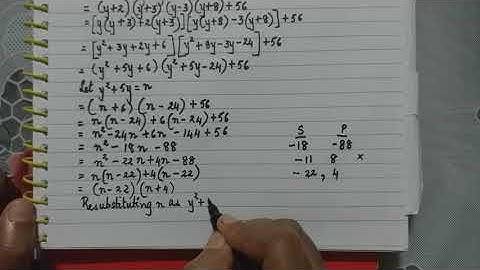 = (y+2) (y+3) (y-3) (y+8) +56
= [y(y+3)+2(y+3)] [y(y+8) -3(y+8)] +56
= [y²+3y+2y+6] [y²+8y-3y-24] +56
= (y²+5y+6) (y²+5y-24) +56
Let y²+5y = n
= (n+6) (n-24) +56
= n(n-24) +6(n-24) +56
= n²-24n +6n -144 +56
= n² -18n -88
= n² -22n +4n -88
= n(n-22) +4(n-22)
= (n-22) (n+4)
Resubstituting n as y²+
S P
-18 -88
-11 8 ×
-22, 4